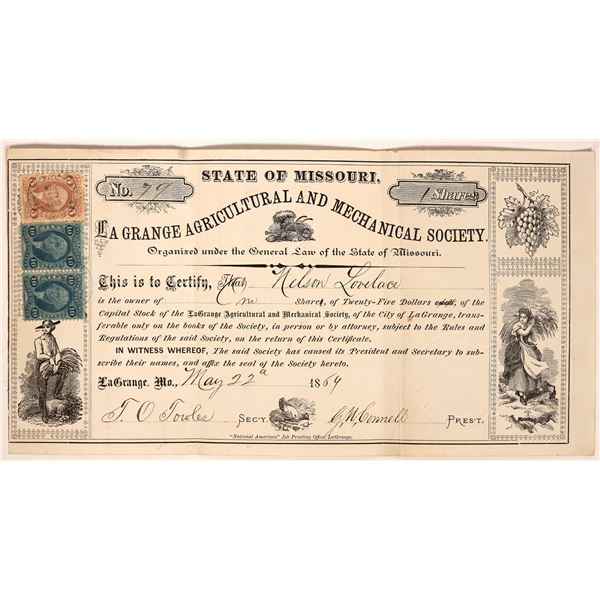 STATE OF MISSOURI.
No. 79
1 Shares
LA GRANGE AGRICULTURAL AND MECHANICAL SOCIETY.
Organized under the General Law of the State of Missouri.
This is to Certify, That Nilson Lovelace
is the owner of One Share, of Twenty-Five Dollars each, of the
Capital Stock of the LaGrange Agricultural and Mechanical Society, of the City of LaGrange, trans-
ferable only on the books of the Society, in person or by attorney, subject to the Rules and
Regulations of the said Society, on the return of this Certificate.
IN WITNESS WHEREOF, The said Society has caused its President and Secretary to sub-
scribe their names, and affix the seal of the Society hereto.
LaGrange, Mo., May 22d 1869
T. O Towles SEC'Y. G W Connell PRES'T.
"National American" Job Printing Office, LaGrange.